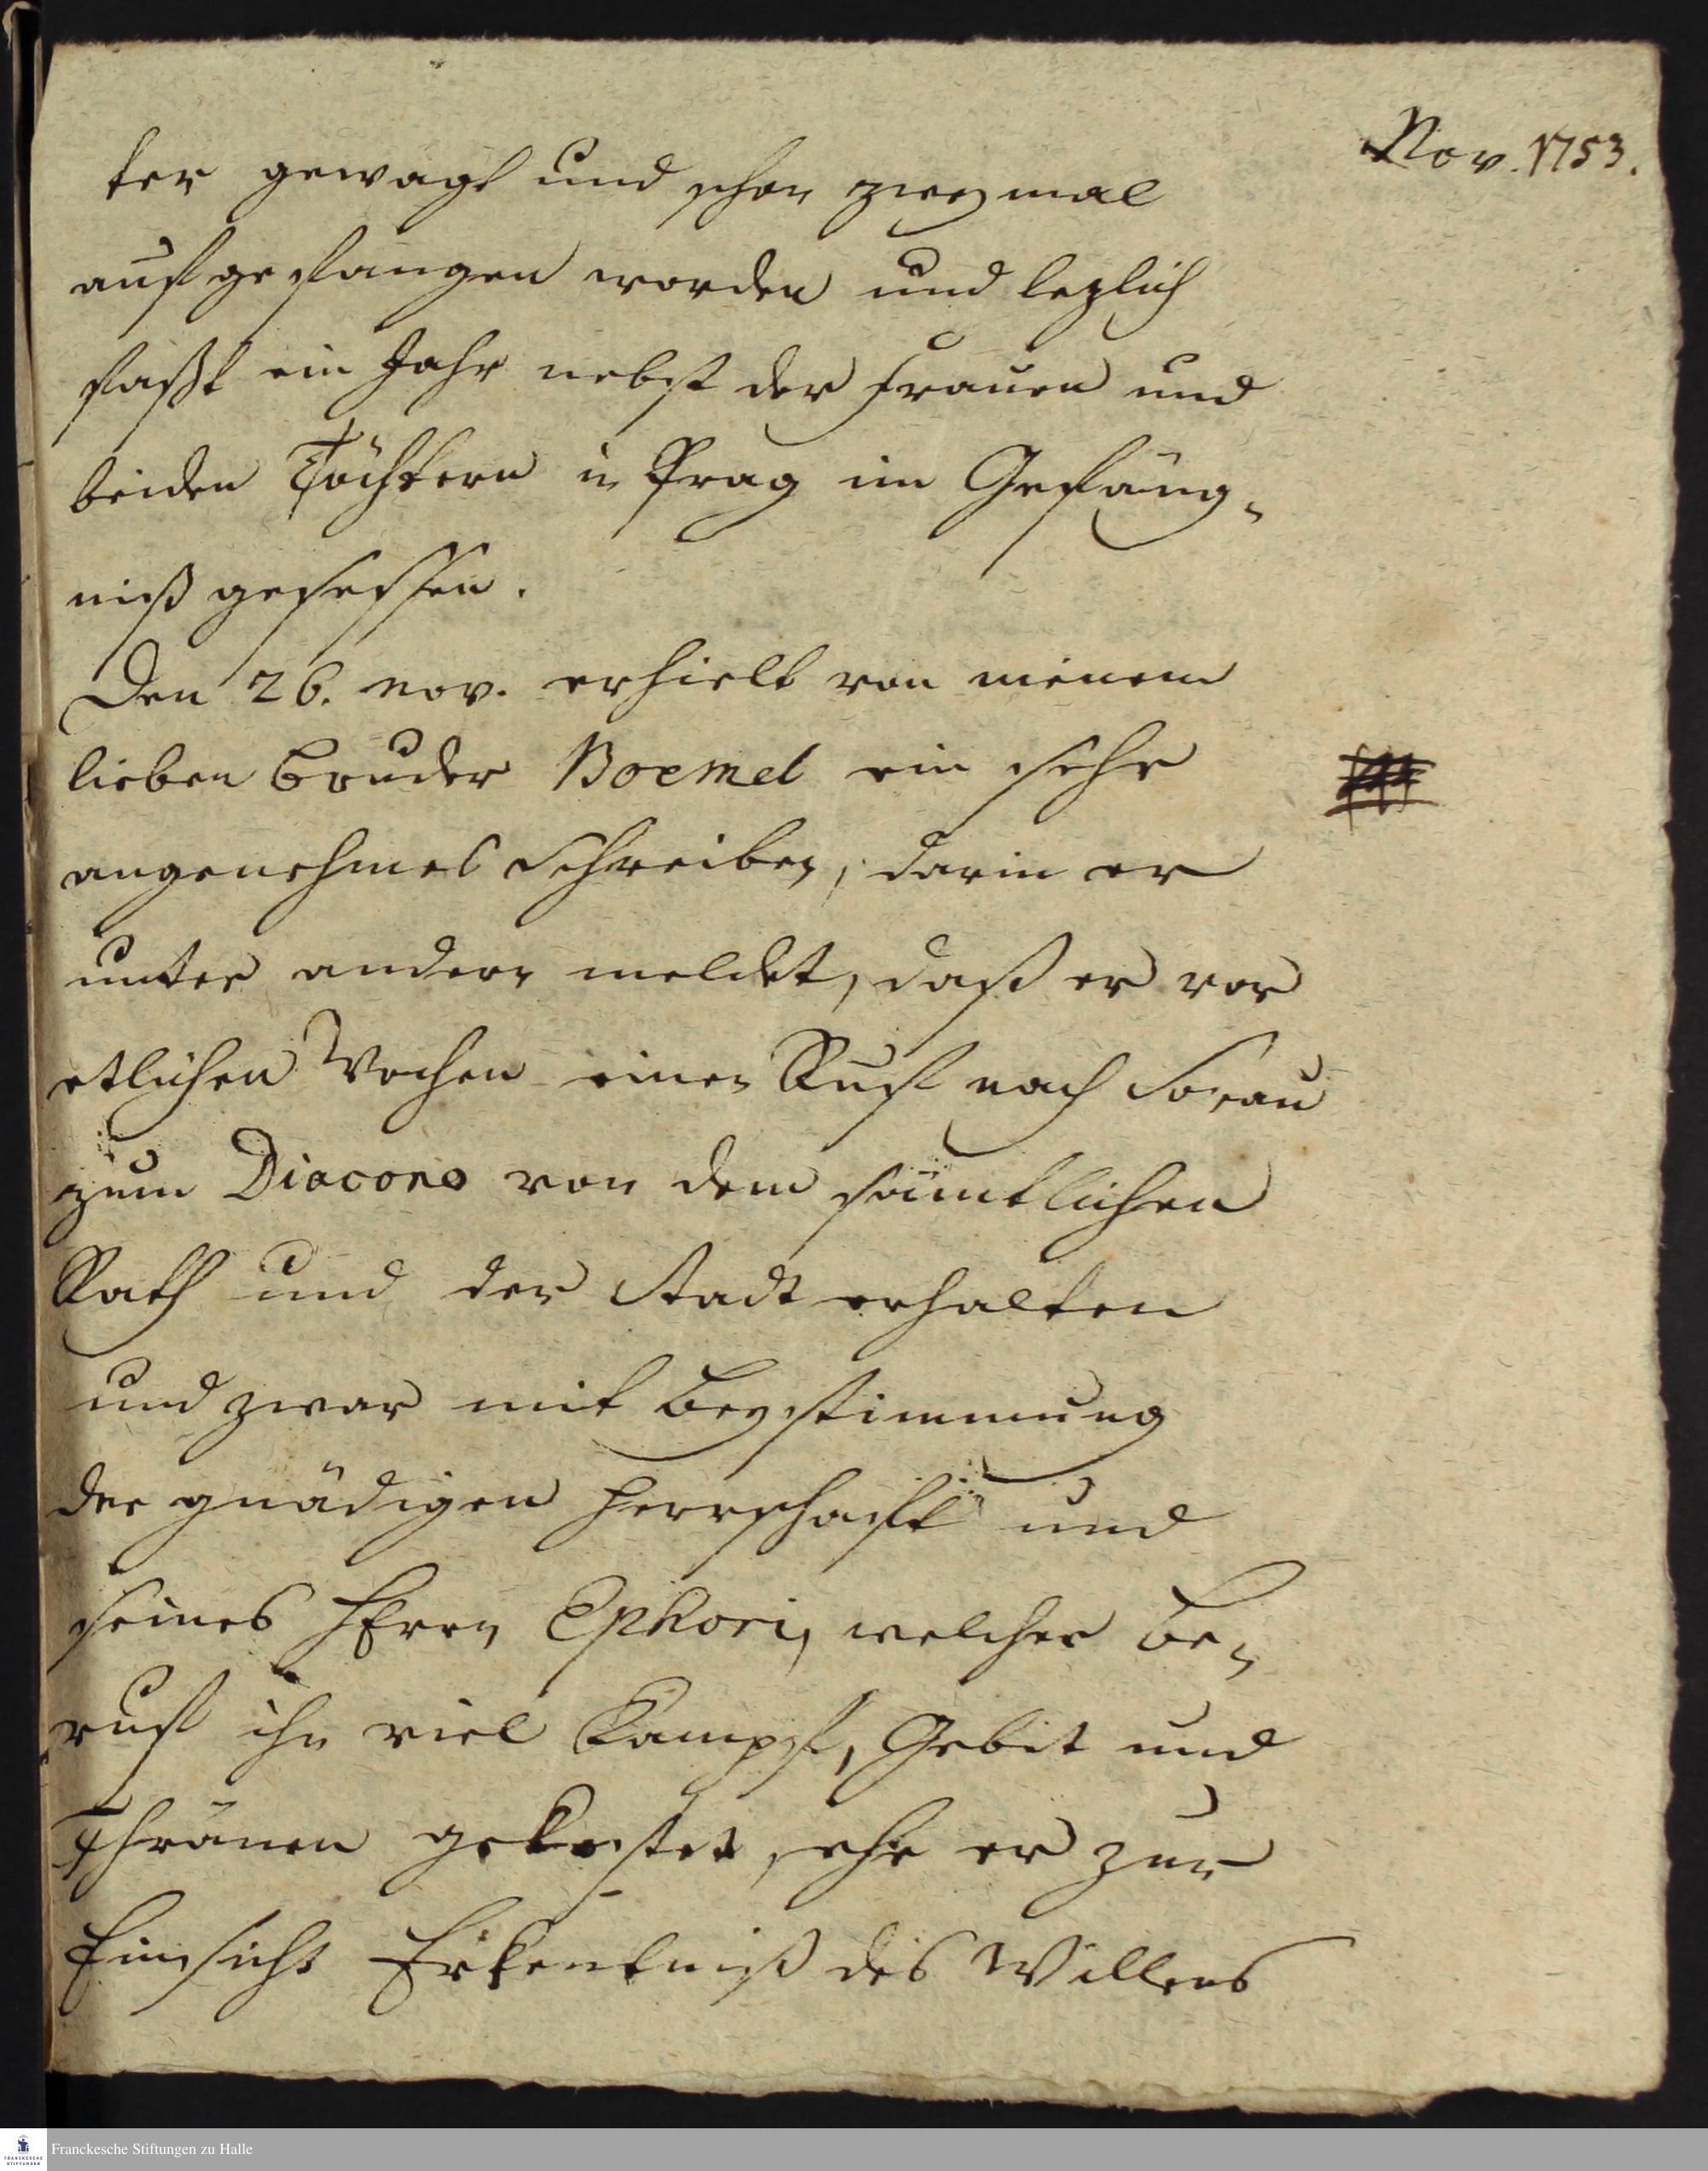 Nov. 1753.
ter gewagt und schon zweymal
aufgefangen worden und lezlich
faßt ein Jahr nebst der Frauen und
beiden Töchtern in Prag im Gefäng-
niß gesessen.
Den 26. nov. erhielt von meinem
lieben Bruder Boemel ein sehr
angenehmes Schreiben, darin er
unter andern meldet, daß er vor
etlichen Wochen einen Ruf nach Sorau
zum Diacono von dem sämtlichen
Rath und der Stadt erhalten
und zwar mit Beystimmung
der gnädigen Herrschaft und
seines HErrn Ephori, welcher Be-
ruf ihn viel Kampf, Gebet und
Thränen gekostet, ehe er zur
Einsicht Erkentniß des Willens
Franckesche Stiftungen zu Halle
FRANCKESCHE
STIFTUNGEN